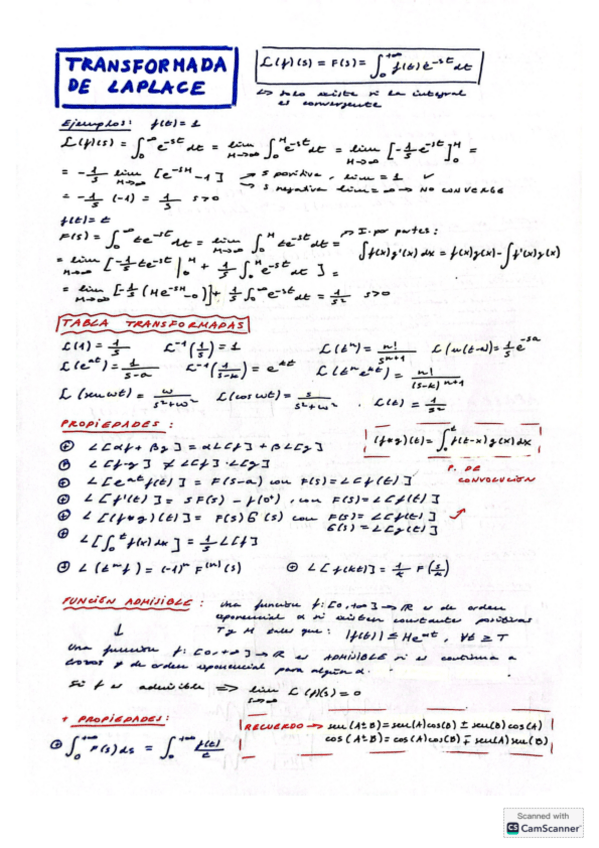 TRANSFORMADA DE LAPLACE
L(f)(s) = F(s) = ∫₀^{+∞} f(t) e^{-st} dt
↳ solo existe si la integral es convergente
Ejemplos: f(t) = 1
L(f)(s) = ∫₀^∞ e^{-st} dt = lim_{M→∞} ∫₀^M e^{-st} dt = lim_{M→∞} [-1/s e^{-st}]₀^M =
= -1/s lim_{M→∞} [e^{-sM} - 1] → s positiva, lim = 1 ✓
→ s negativa lim = ∞ → NO CONVERGE
= -1/s (-1) = 1/s s>0
f(t) = t
F(s) = ∫₀^∞ te^{-st} dt = lim_{M→∞} ∫₀^M te^{-st} dt = → I. por partes:
∫f(x)g'(x)dx = f(x)g(x) - ∫f'(x)g(x)
= lim_{M→∞} [-1/s te^{-st} |₀^M + 1/s ∫₀^M e^{-st} dt] =
= lim_{M→∞} [-1/s (Me^{-sM} - 0)] + 1/s ∫₀^∞ e^{-st} dt = 1/s² s>0
TABLA TRANSFORMADAS
L(1) = 1/s L⁻¹(1/s) = 1 L(tⁿ) = n!/s^{n+1} L(u(t-a)) = 1/s e^{-sa}
L(e^{at}) = 1/(s-a) L⁻¹(1/(s-k)) = e^{kt} L(tⁿe^{kt}) = n!/(s-k)^{n+1}
L(sen wt) = w/(s²+w²) L(cos wt) = s/(s²+w²) L(t) = 1/s²
PROPIEDADES:
L[αf + βg] = αL[f] + βL[g]
(f*g)(t) = ∫₀^t f(t-x)g(x)dx
L[f·g] ≠ L[f]·L[g]
P. DE CONVOLUCIÓN
L[e^{at}f(t)] = F(s-a) con F(s) = L[f(t)]
L[f'(t)] = sF(s) - f(0⁺), con F(s) = L[f(t)]
L[(f*g)(t)] = F(s)G(s) con F(s) = L[f(t)]
G(s) = L[g(t)]
L[∫₀^t f(x)dx] = 1/s L[f]
L(tⁿf) = (-1)ⁿ F^{(n)}(s) L[f(kt)] = 1/k F(s/k)
FUNCIÓN ADMISIBLE: Una función f: [0,+∞] → R es de orden
exponencial α si existen constantes positivas
T y M tales que: |f(t)| ≤ Me^{αt}, ∀t ≥ T
↓
Una función f: [0,+∞] → R es ADMISIBLE si es continua a
trozos y de orden exponencial para algún α.
Si f es admisible ⟹ lim_{s→∞} L(f)(s) = 0
+ PROPIEDADES:
RECUERDO → sen(A±B) = sen(A)cos(B) ± sen(B)cos(A)
cos(A±B) = cos(A)cos(B) ∓ sen(A)sen(B)
∫₀^{+∞} F(s)ds = ∫₀^{+∞} f(t)/t
Scanned with
CS CamScanner